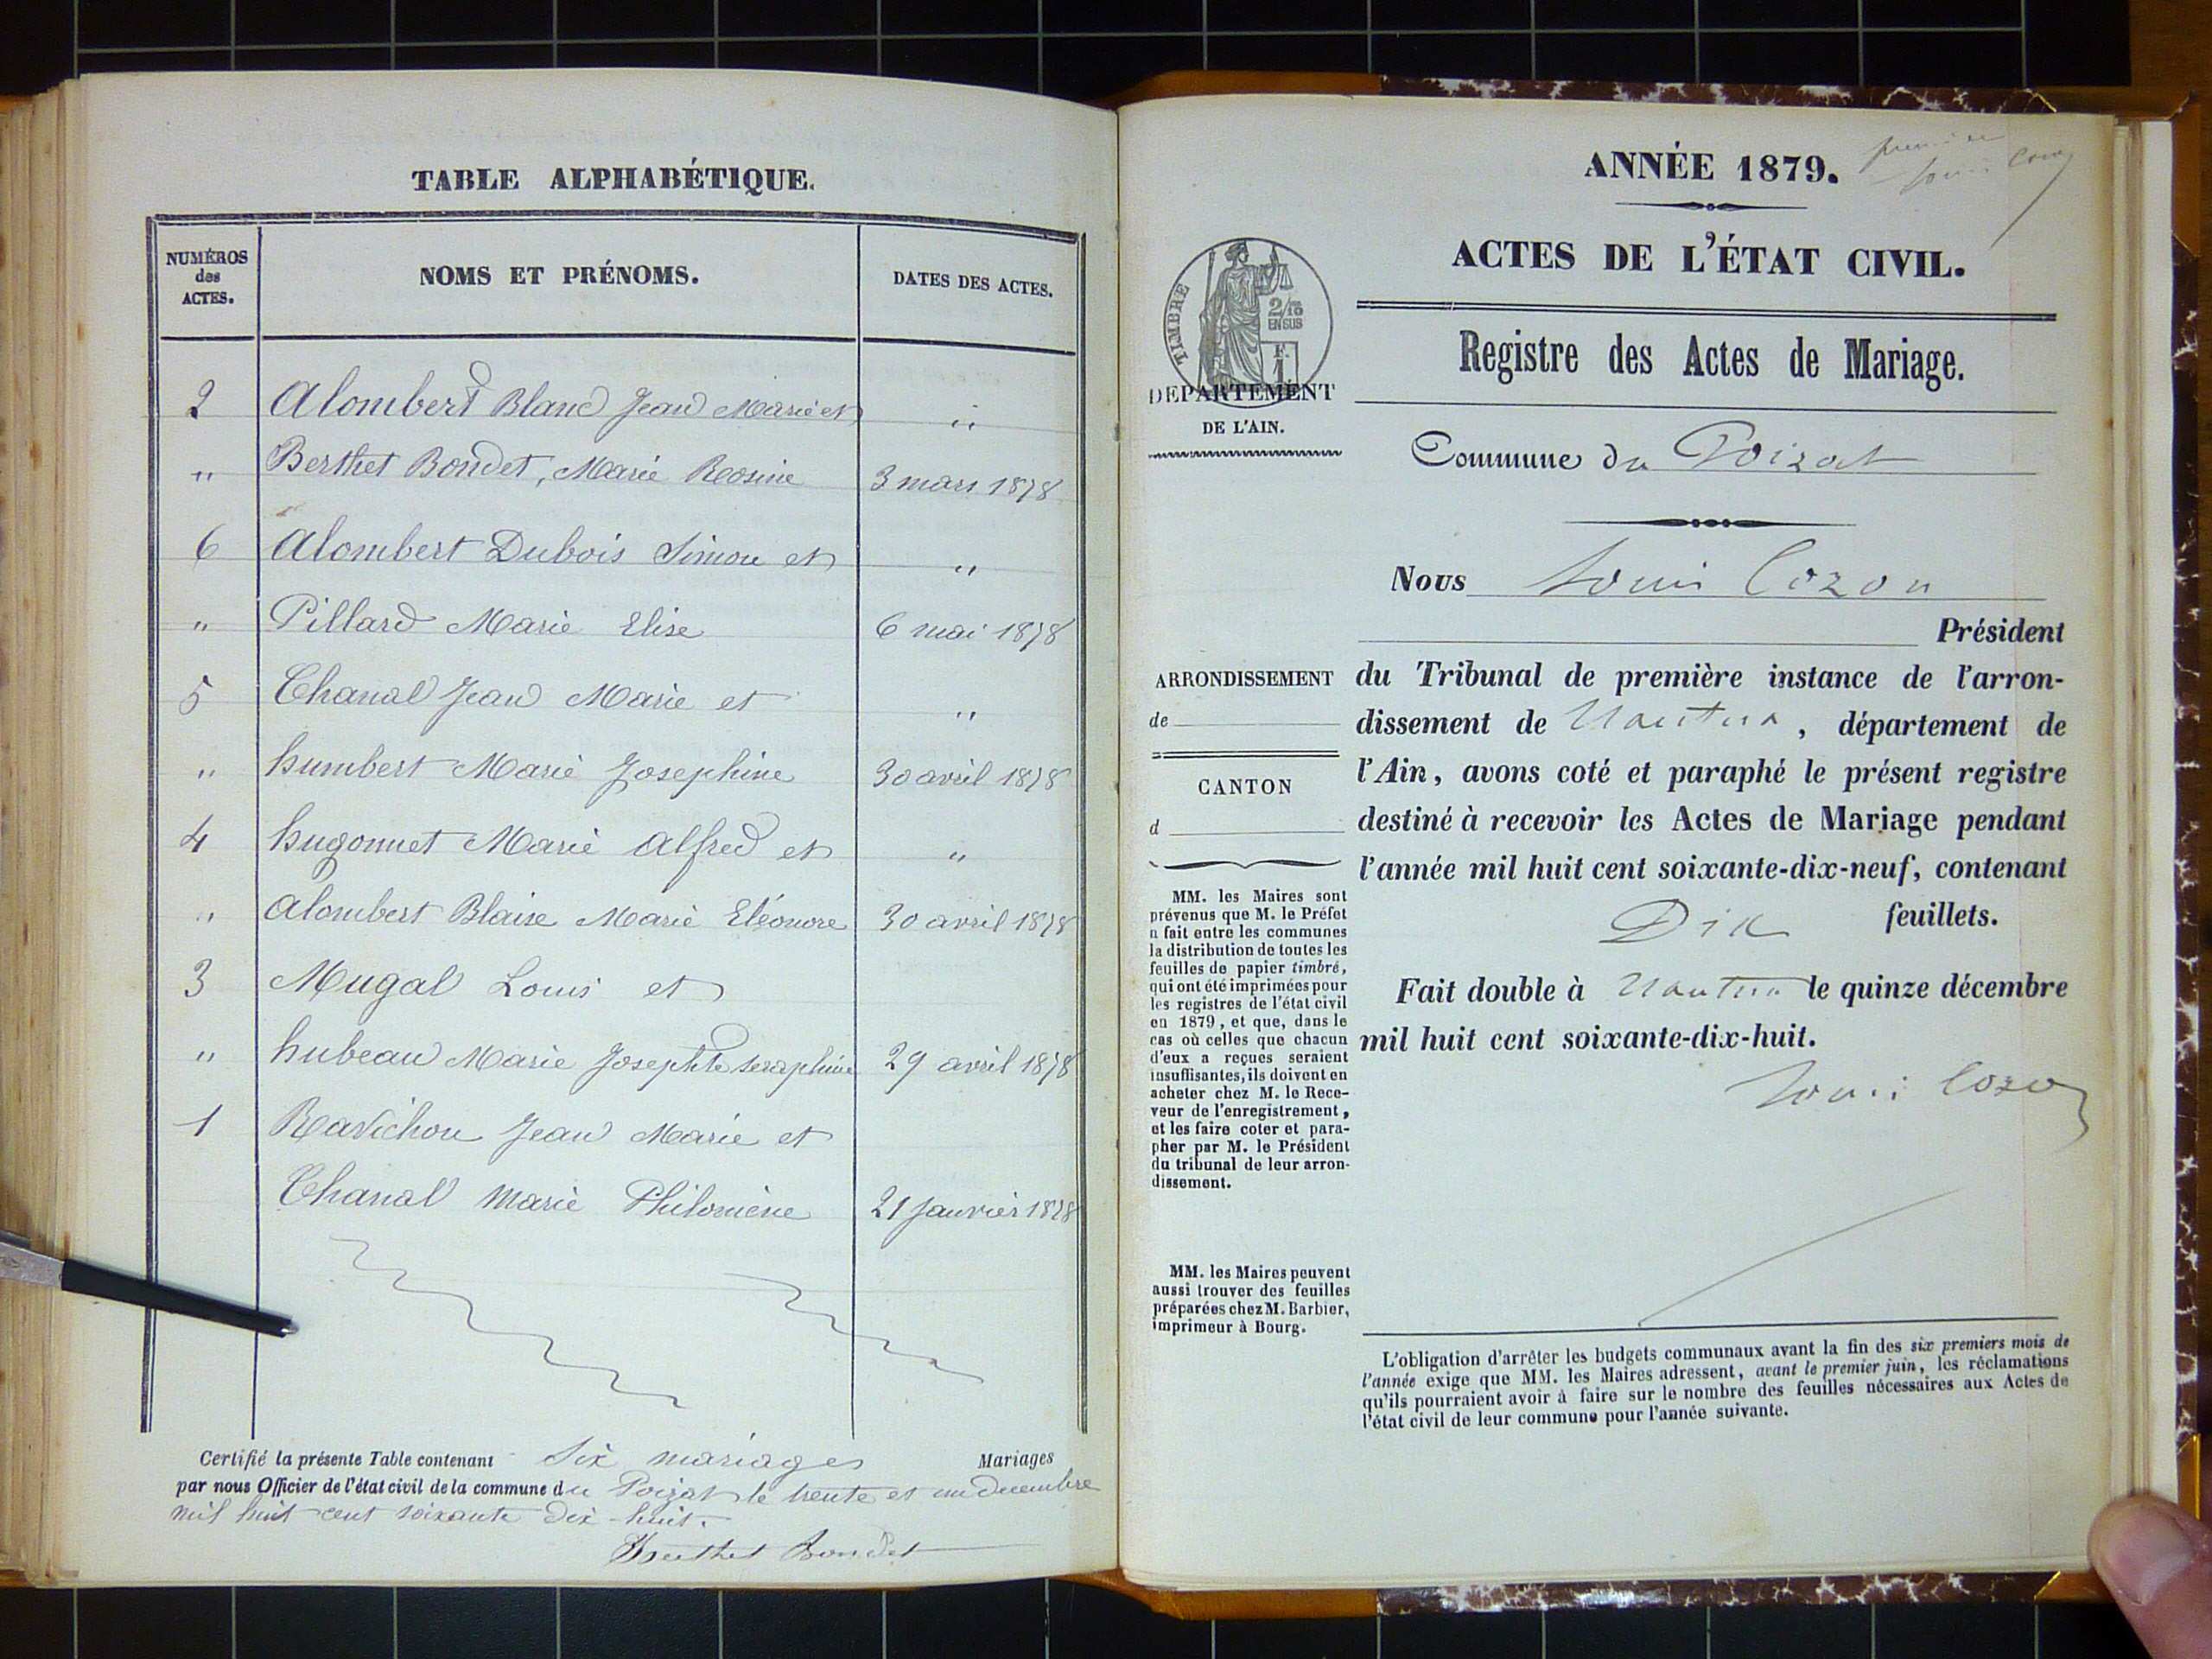 TABLE ALPHABÉTIQUE.
NUMÉROS
des
ACTES.
NOMS ET PRÉNOMS.
DATES DES ACTES.
2 Alombert Blanc Jean Marie et "
" Berthet Bondet, Marie Rosine 3 mars 1878
6 Alombert Dubois Simon et "
" Pillard Marie Elise 6 mai 1878
5 Chanal Jean Marie et "
" humbert Marie Josephine 30 avril 1878
4 hugonnet Marie Alfred et "
" Alombert Blaise Marie Eléonore 30 avril 1878
3 Mugal Louis et
" hubeau Marie Josephte Seraphine 29 avril 1878
1 Ravichon Jean Marie et
Chanal Marie Philomène 21 janvier 1878
Certifié la présente Table contenant Six mariages Mariages
par nous Officier de l'état civil de la commune du Poizat le trente et un Decembre
mil huit cent soixante Dix-huit.
Berthet Bondet
ANNÉE 1879.
première
Louis Cozon
ACTES DE L'ÉTAT CIVIL.
TIMBRE
2/10
EN SUS
F.
1
DEPARTEMENT
DE L'AIN.
Registre des Actes de Mariage.
Commune du Poizat
Nous Louis Cozon
Président
du Tribunal de première instance de l'arron-
dissement de Nantua, département de
l'Ain, avons coté et paraphé le présent registre
destiné à recevoir les Actes de Mariage pendant
l'année mil huit cent soixante-dix-neuf, contenant
Dix feuillets.
Fait double à Nantua le quinze décembre
mil huit cent soixante-dix-huit.
Louis Cozon
ARRONDISSEMENT
de
CANTON
d
MM. les Maires sont
prévenus que M. le Préfet
a fait entre les communes
la distribution de toutes les
feuilles de papier timbré,
qui ont été imprimées pour
les registres de l'état civil
en 1879, et que, dans le
cas où celles que chacun
d'eux a reçues seraient
insuffisantes, ils doivent en
acheter chez M. le Rece-
veur de l'enregistrement,
et les faire coter et para-
pher par M. le Président
du tribunal de leur arron-
dissement.
MM. les Maires peuvent
aussi trouver des feuilles
préparées chez M. Barbier,
imprimeur à Bourg.
L'obligation d'arrêter les budgets communaux avant la fin des six premiers mois de
l'année exige que MM. les Maires adressent, avant le premier juin, les réclamations
qu'ils pourraient avoir à faire sur le nombre des feuilles nécessaires aux Actes de
l'état civil de leur commune pour l'année suivante.